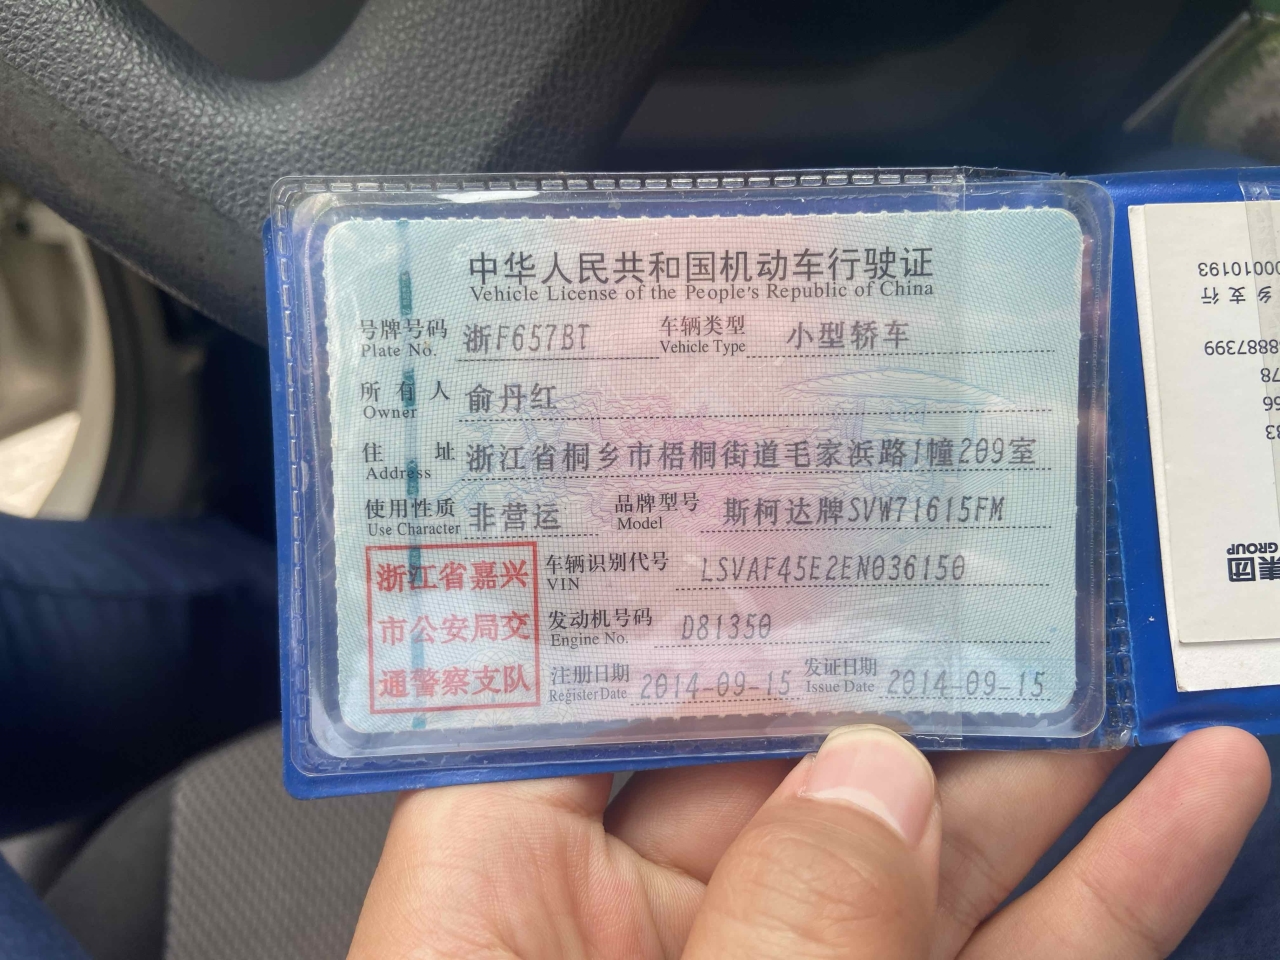 中华人民共和国机动车行驶证
Vehicle License of the People's Republic of China
号牌号码 浙F657BT 车辆类型 小型轿车
Plate No. Vehicle Type
所有人 俞丹红
Owner
住址 浙江省桐乡市梧桐街道毛家浜路1幢209室
Address
使用性质 非营运 品牌型号 斯柯达牌SVW71615FM
Use Character Model
浙江省嘉兴
市公安局交
通警察支队
车辆识别代号 LSVAF45E2EN036150
VIN
发动机号码 D81350
Engine No.
注册日期 2014-09-15 发证日期 2014-09-15
Register Date Issue Date
集团
GROUP
33
56
78
8887399
乡支行
00010193